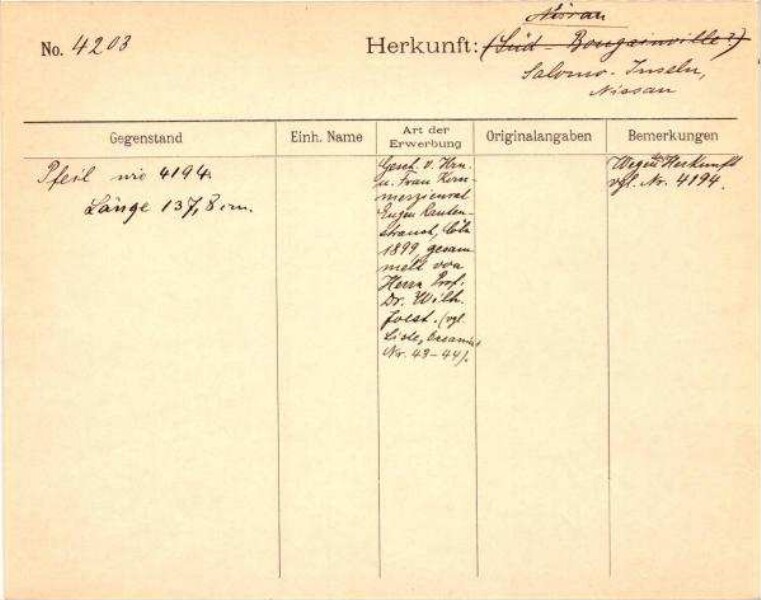 Nissan
No. 4203 Herkunft: (Süd-Bougainville?)
Salomo-Inseln,
Nissan
Gegenstand
Einh. Name
Art der
Erwerbung
Originalangaben
Bemerkungen
Pfeil wie 4194.
Länge 137,8 cm.
Gesch. v. Hrn.
u. Frau Kom-
merzienrat
Eugen Rauten-
strauch, Cöln
1899, gesam
melt von
Herrn Prof.
Dr. Wilh.
Joest. (vgl.
Liste,
Nr. 43-44).
Wegen der Herkunft
vgl. Nr. 4194.